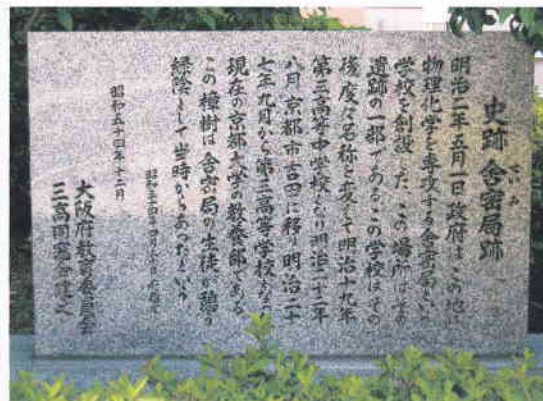 史跡 舎密局跡
せいみ
明治二年五月一日政府は、この地に
物理化学を専攻する舎密局という
学校を創設した。この場所はその
遺跡の一部である。この学校はその
後度々名称を変えて明治十九年
第三高等中学校となり明治二十二年
八月京都市吉田に移り明治二十
七年九月から第三高等学校となった
現在の京都大学の教養部である
この樟樹は舎密局の生徒が憩の
緑陰として当時からあったという
昭和五十四年十二月
大阪府教育委員会
三高同窓会建之